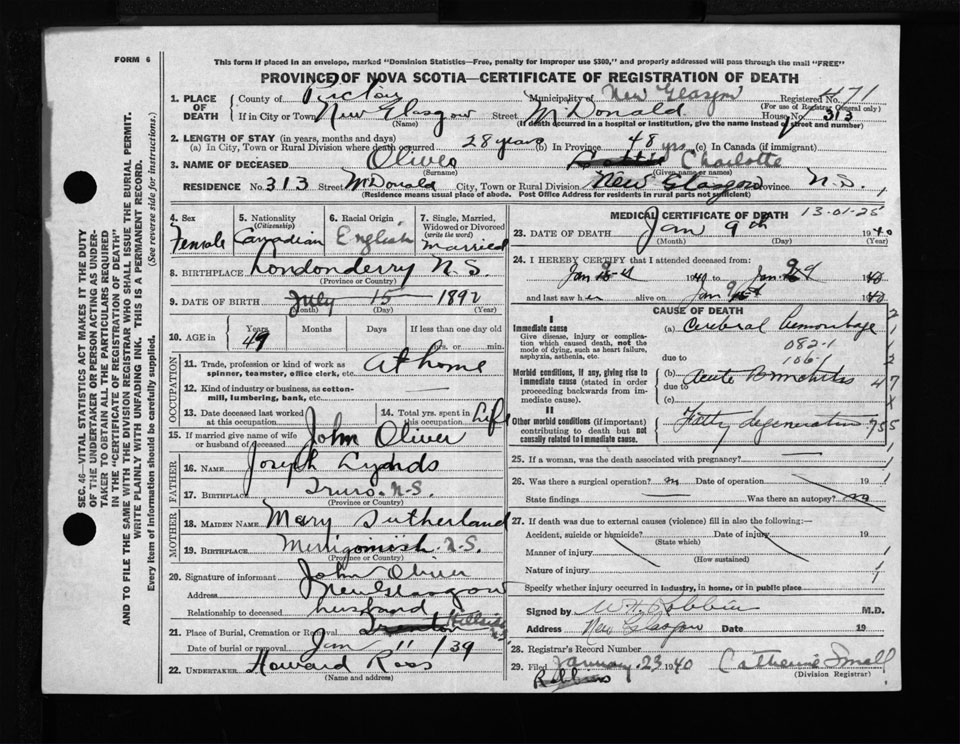 FORM 6
This form if placed in an envelope, marked "Dominion Statistics—Free, penalty for improper use $300," and properly addressed will pass through the mail "FREE"
PROVINCE OF NOVA SCOTIA—CERTIFICATE OF REGISTRATION OF DEATH
SEC. 46—VITAL STATISTICS ACT MAKES IT THE DUTY
OF THE UNDERTAKER OR PERSON ACTING AS UNDER-
TAKER TO OBTAIN ALL THE PARTICULARS REQUIRED
IN THE "CERTIFICATE OF REGISTRATION OF DEATH"
AND TO FILE THE SAME WITH THE DIVISION REGISTRAR WHO SHALL ISSUE THE BURIAL PERMIT.
WRITE PLAINLY WITH UNFADING INK. THIS IS A PERMANENT RECORD.
Every item of information should be carefully supplied. (See reverse side for instructions.)
1. PLACE OF DEATH County of Pictou Municipality of New Glasgow Registered No. 471
(For use of Registrar General only)
If in City or Town New Glasgow Street McDonald House No. 313
(Name) (If death occurred in a hospital or institution, give the name instead of street and number)
2. LENGTH OF STAY (in years, months and days)
(a) In City, Town or Rural Division where death occurred 28 years (b) In Province 48 yrs (c) In Canada (if immigrant)
3. NAME OF DECEASED Oliver Charlotte
(Surname) (Given name or names)
RESIDENCE No. 313 Street McDonald City, Town or Rural Division New Glasgow Province N.S.
(Residence means usual place of abode. Post Office Address for residents in rural parts not sufficient)
4. Sex Female
5. Nationality (Citizenship) Canadian
6. Racial Origin English
7. Single, Married, Widowed or Divorced (write the word) Married
8. BIRTHPLACE Londonderry N.S
(Province or Country)
9. DATE OF BIRTH July 15 1892
(Month) (Day) (Year)
10. AGE in Years 49 Months Days If less than one day
hrs. or min.
OCCUPATION
11. Trade, profession or kind of work as spinner, teamster, office clerk, etc. At home
12. Kind of industry or business, as cotton-mill, lumbering, bank, etc.
13. Date deceased last worked at this occupation
14. Total yrs. spent in this occupation Life
15. If married give name of wife or husband of deceased John Oliver
FATHER
16. NAME Joseph
17. BIRTHPLACE Truro. N.S.
(Province or Country)
MOTHER
18. MAIDEN NAME Mary Sutherland
19. BIRTHPLACE Merrigomish N.S.
(Province or Country)
20. Signature of informant John Oliver
Address New Glasgow
Relationship to deceased husband
21. Place of Burial, Cremation or Removal Trenton Hillside
Date of burial or removal Jan 11 '39
22. UNDERTAKER Howard Ross
(Name and address)
MEDICAL CERTIFICATE OF DEATH 13-01-25
23. DATE OF DEATH Jan 9th 1940
(Month) (Day) (Year)
24. I HEREBY CERTIFY that I attended deceased from:
Jan 1940 to Jan 9 1940
and last saw her alive on Jan 1940
CAUSE OF DEATH
I
Immediate cause
Give disease, injury or complication which caused death, not the mode of dying, such as heart failure, asphyxia, asthenia, etc.
(a) Cerebral Hemorrhage
082.1
due to 106.1
Morbid conditions, if any, giving rise to immediate cause (stated in order proceeding backwards from immediate cause).
(b) Acute Bronchitis
due to
(c)
II
Other morbid conditions (if important) contributing to death but not causally related to immediate cause.
Fatty degeneration
25. If a woman, was the death associated with pregnancy?
26. Was there a surgical operation? no Date of operation 19
State findings Was there an autopsy? no
27. If death was due to external causes (violence) fill in also the following:—
Accident, suicide or homicide? Date of injury 19
(State which)
Manner of injury
(How sustained)
Nature of injury
Specify whether injury occurred in industry, in home, or in public place
Signed by W H Robbins M.D.
Address New Glasgow Date 19
28. Registrar's Record Number
29. Filed January 23 1940 Catherine Small
(Division Registrar)